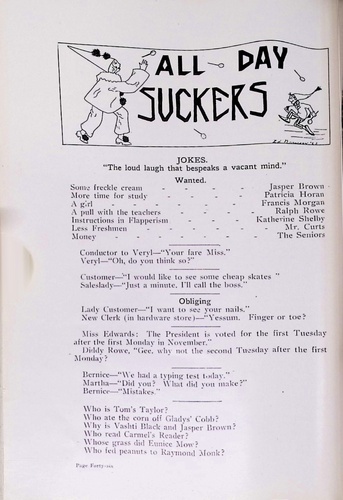 ALL DAY
SUCKERS
JOKES.
"The loud laugh that bespeaks a vacant mind."
Wanted.
Some freckle cream - - - - Jasper Brown
More time for study - - - - Patricia Horan
A girl - - - - - - Francis Morgan
A pull with the teachers - - - - Ralph Rowe
Instructions in Flapperism - - - Katherine Shelby
Less Freshmen - - - - - Mr. Curts
Money - - - - - - The Seniors
Conductor to Veryl—"Your fare Miss."
Veryl—"Oh, do you think so?"
Customer—"I would like to see some cheap skates "
Saleslady—"Just a minute. I'll call the boss."
Obliging
Lady Customer—"I want to see your nails."
New Clerk (in hardware store)—"Yessum. Finger or toe?
Miss Edwards: The President is voted for the first Tuesday
after the first Monday in November."
Diddy Rowe, "Gee, why not the second Tuesday after the first
Monday?
Bernice—"We had a typing test today."
Martha—"Did you? What did you make?"
Bernice—"Mistakes."
Who is Tom's Taylor?
Who ate the corn off Gladys' Cobb?
Why is Vashti Black and Jasper Brown?
Who read Carmel's Reader?
Whose grass did Eunice Mow?
Who fed peanuts to Raymond Monk?
Page Forty-six